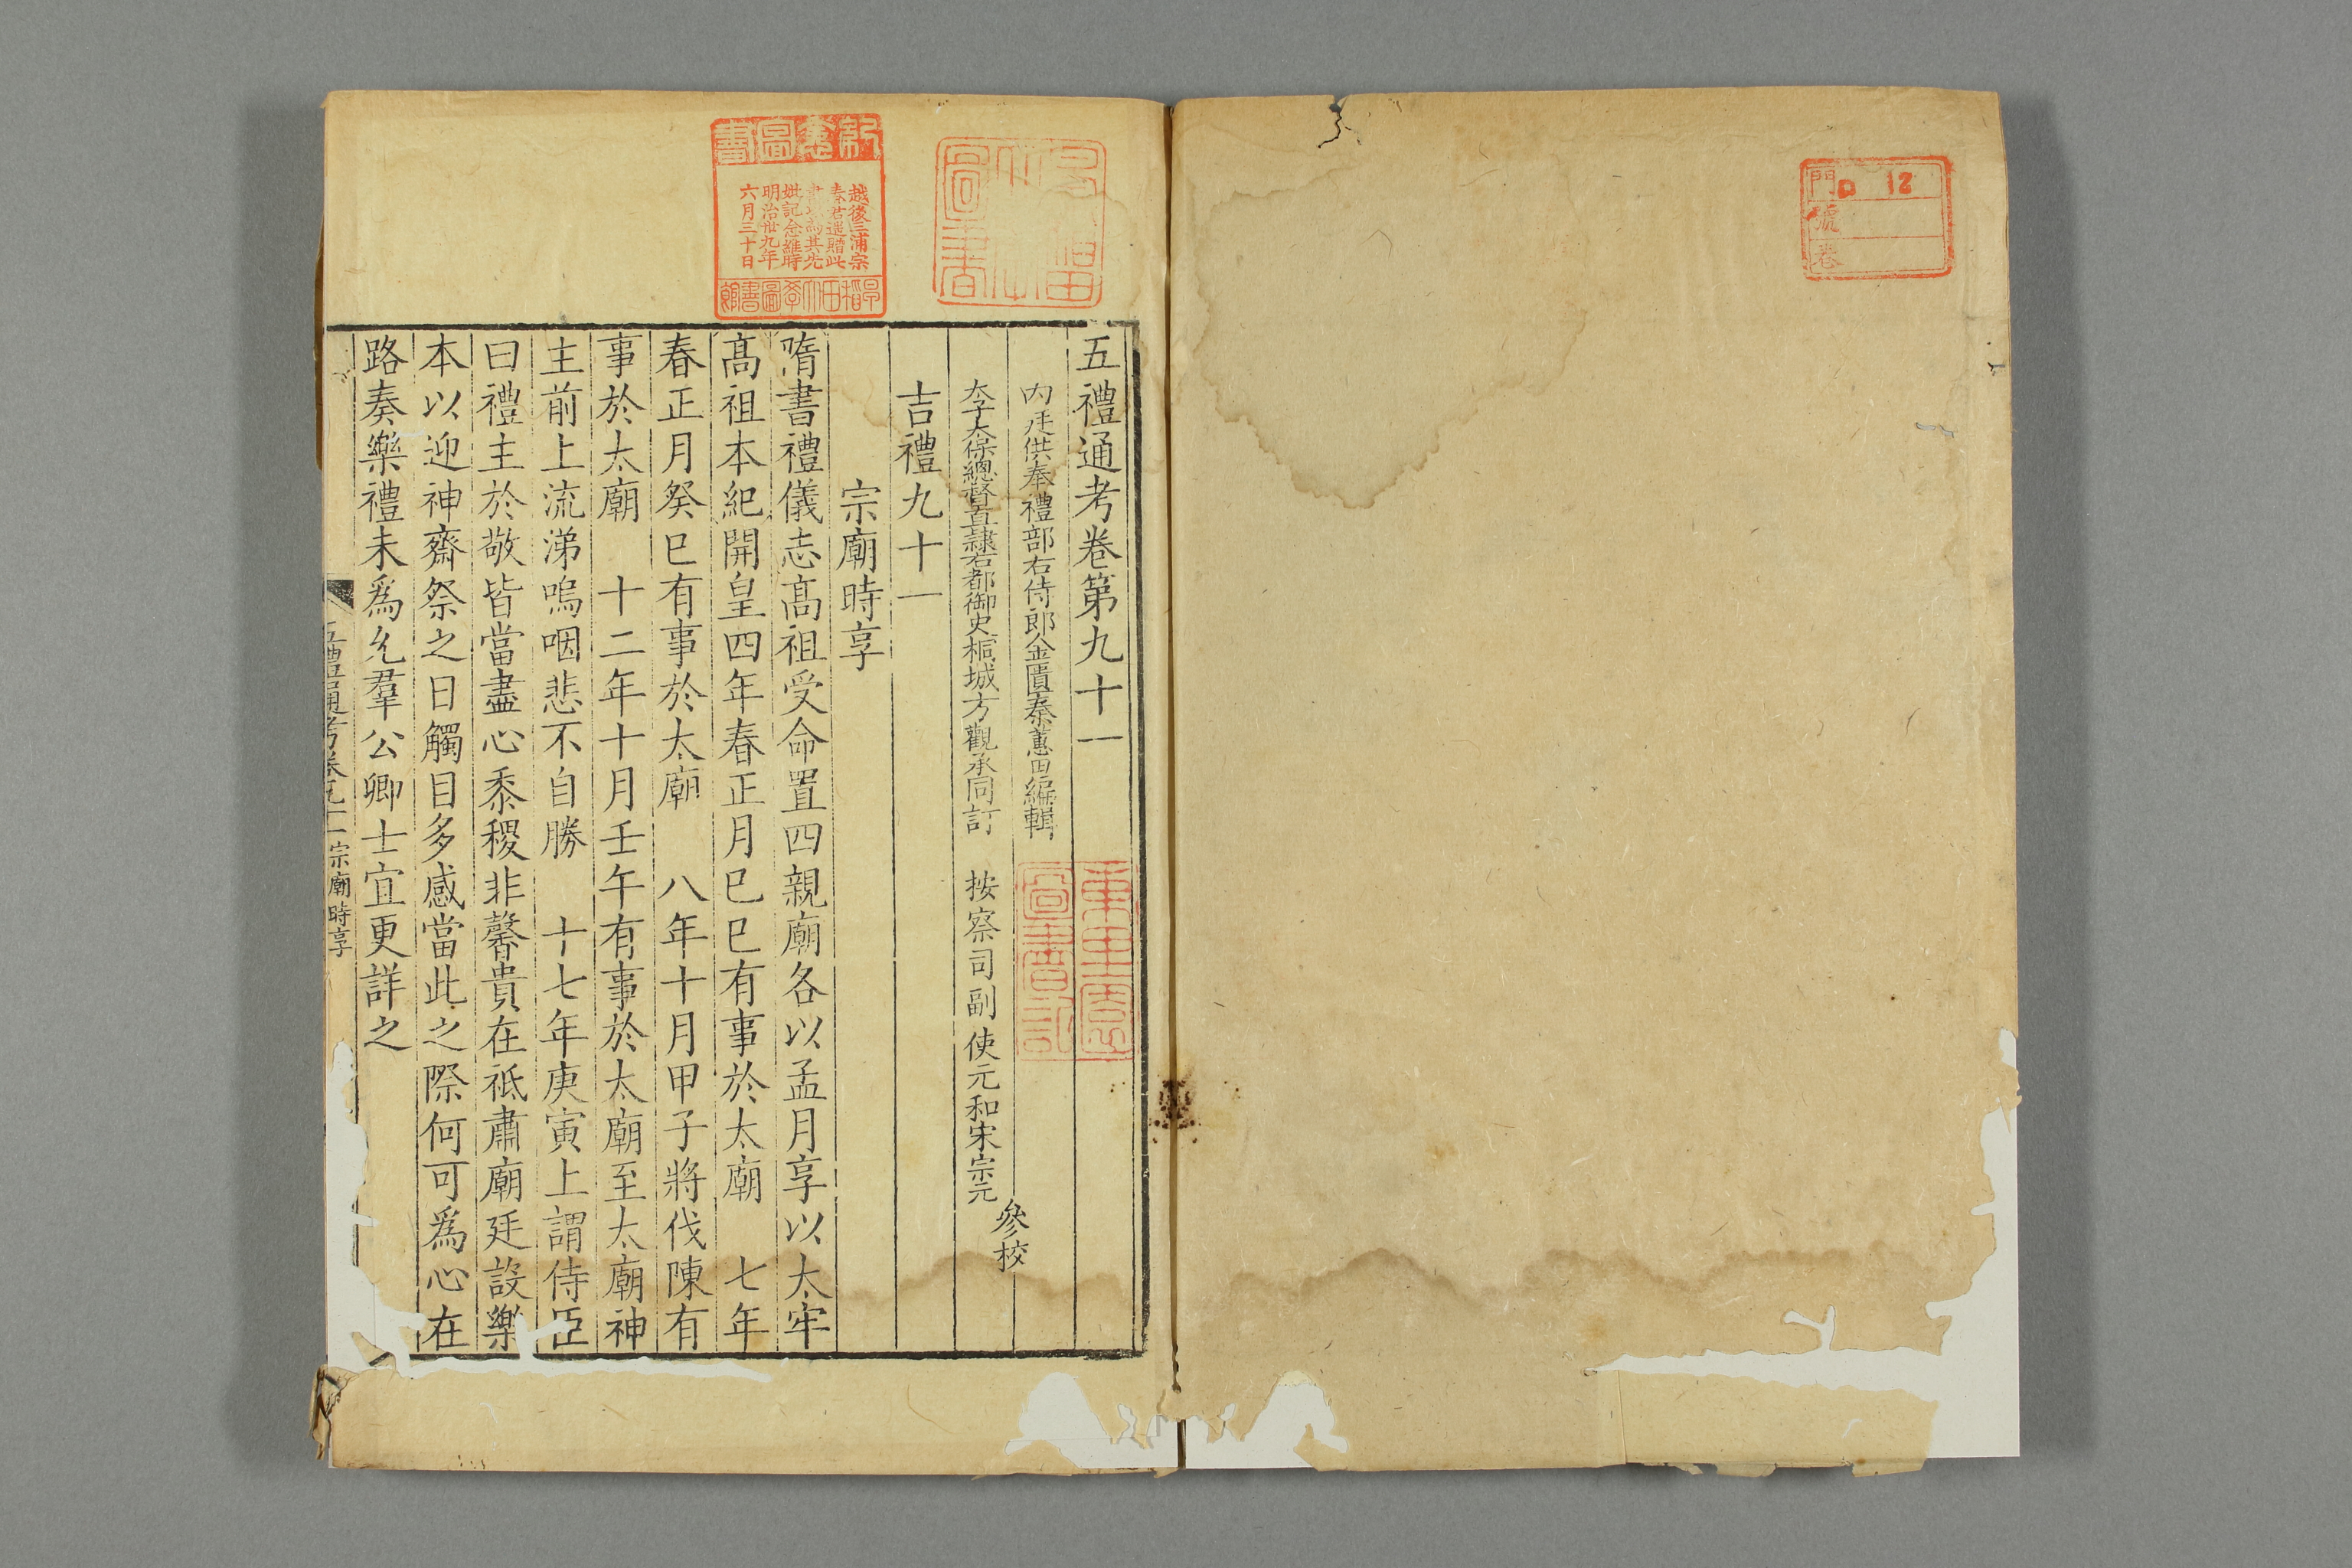 門 12
號
卷
五禮通考卷第九十一
內廷供奉禮部右侍郎金匱秦蕙田編輯
太子太保總督直隸右都御史桐城方觀承同訂 按察司副使元和宋宗元
參校
吉禮九十一
宗廟時享
隋書禮儀志髙祖受命置四親廟各以孟月享以太牢
髙祖本紀開皇四年春正月巳巳有事於太廟 七年
春正月癸巳有事於太廟 八年十月甲子將伐陳有
事於太廟 十二年十月壬午有事於太廟至太廟神
主前上流涕嗚咽悲不自勝 十七年庚寅上謂侍臣
曰禮主於敬皆當盡心黍稷非馨貴在祗肅廟廷設樂
本以迎神齋祭之日觸目多感當此之際何可爲心在
路奏樂禮未爲允羣公卿士宜更詳之
五禮通考卷九十一 宗廟時享
紀念圖書
越後三浦宗
春君遺贈此
書以爲其先
妣記念維時
明治卅九年
六月三十日
早稻田大學圖書館